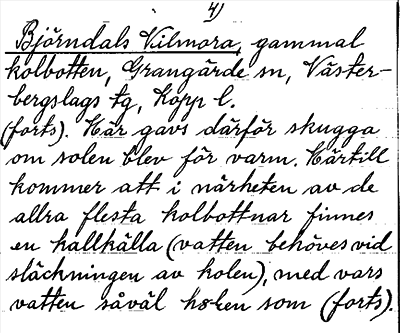 4)
Björndals Kilmora, gammal
kolbotten, Grangärde sn, Väster-
bergslags tg, Kopp l.
(forts). Här gavs därför skugga
om solen blev för varm. Härtill
kommer att i närheten av de
allra flesta kolbottnar finnes
en kallkälla (vatten behöves vid
släckningen av kolen), med vars
vatten såväl kolen som (forts).